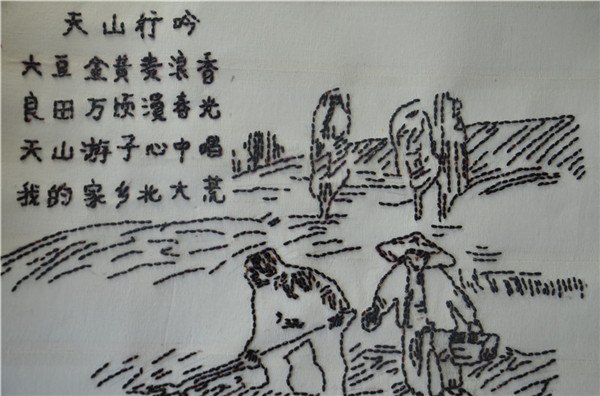 天山行吟
大豆金黄麦浪香
良田万顷漫春光
天山游子心中唱
我的家乡北大荒